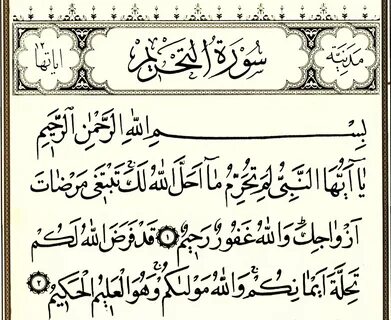 مدنية سورة التحريم آياتها
بِسْمِ اللهِ الرَّحْمٰنِ الرَّحِيمِ
يَا أَيُّهَا النَّبِيُّ لِمَ تُحَرِّمُ مَا أَحَلَّ اللهُ لَكَ تَبْتَغِي مَرْضَاتَ
أَزْوَاجِكَ وَاللهُ غَفُورٌ رَحِيمٌ ﴿١﴾ قَدْ فَرَضَ اللهُ لَكُمْ
تَحِلَّةَ أَيْمَانِكُمْ وَاللهُ مَوْلٰيكُمْ وَهُوَ الْعَلِيمُ الْحَكِيمُ ﴿٢﴾